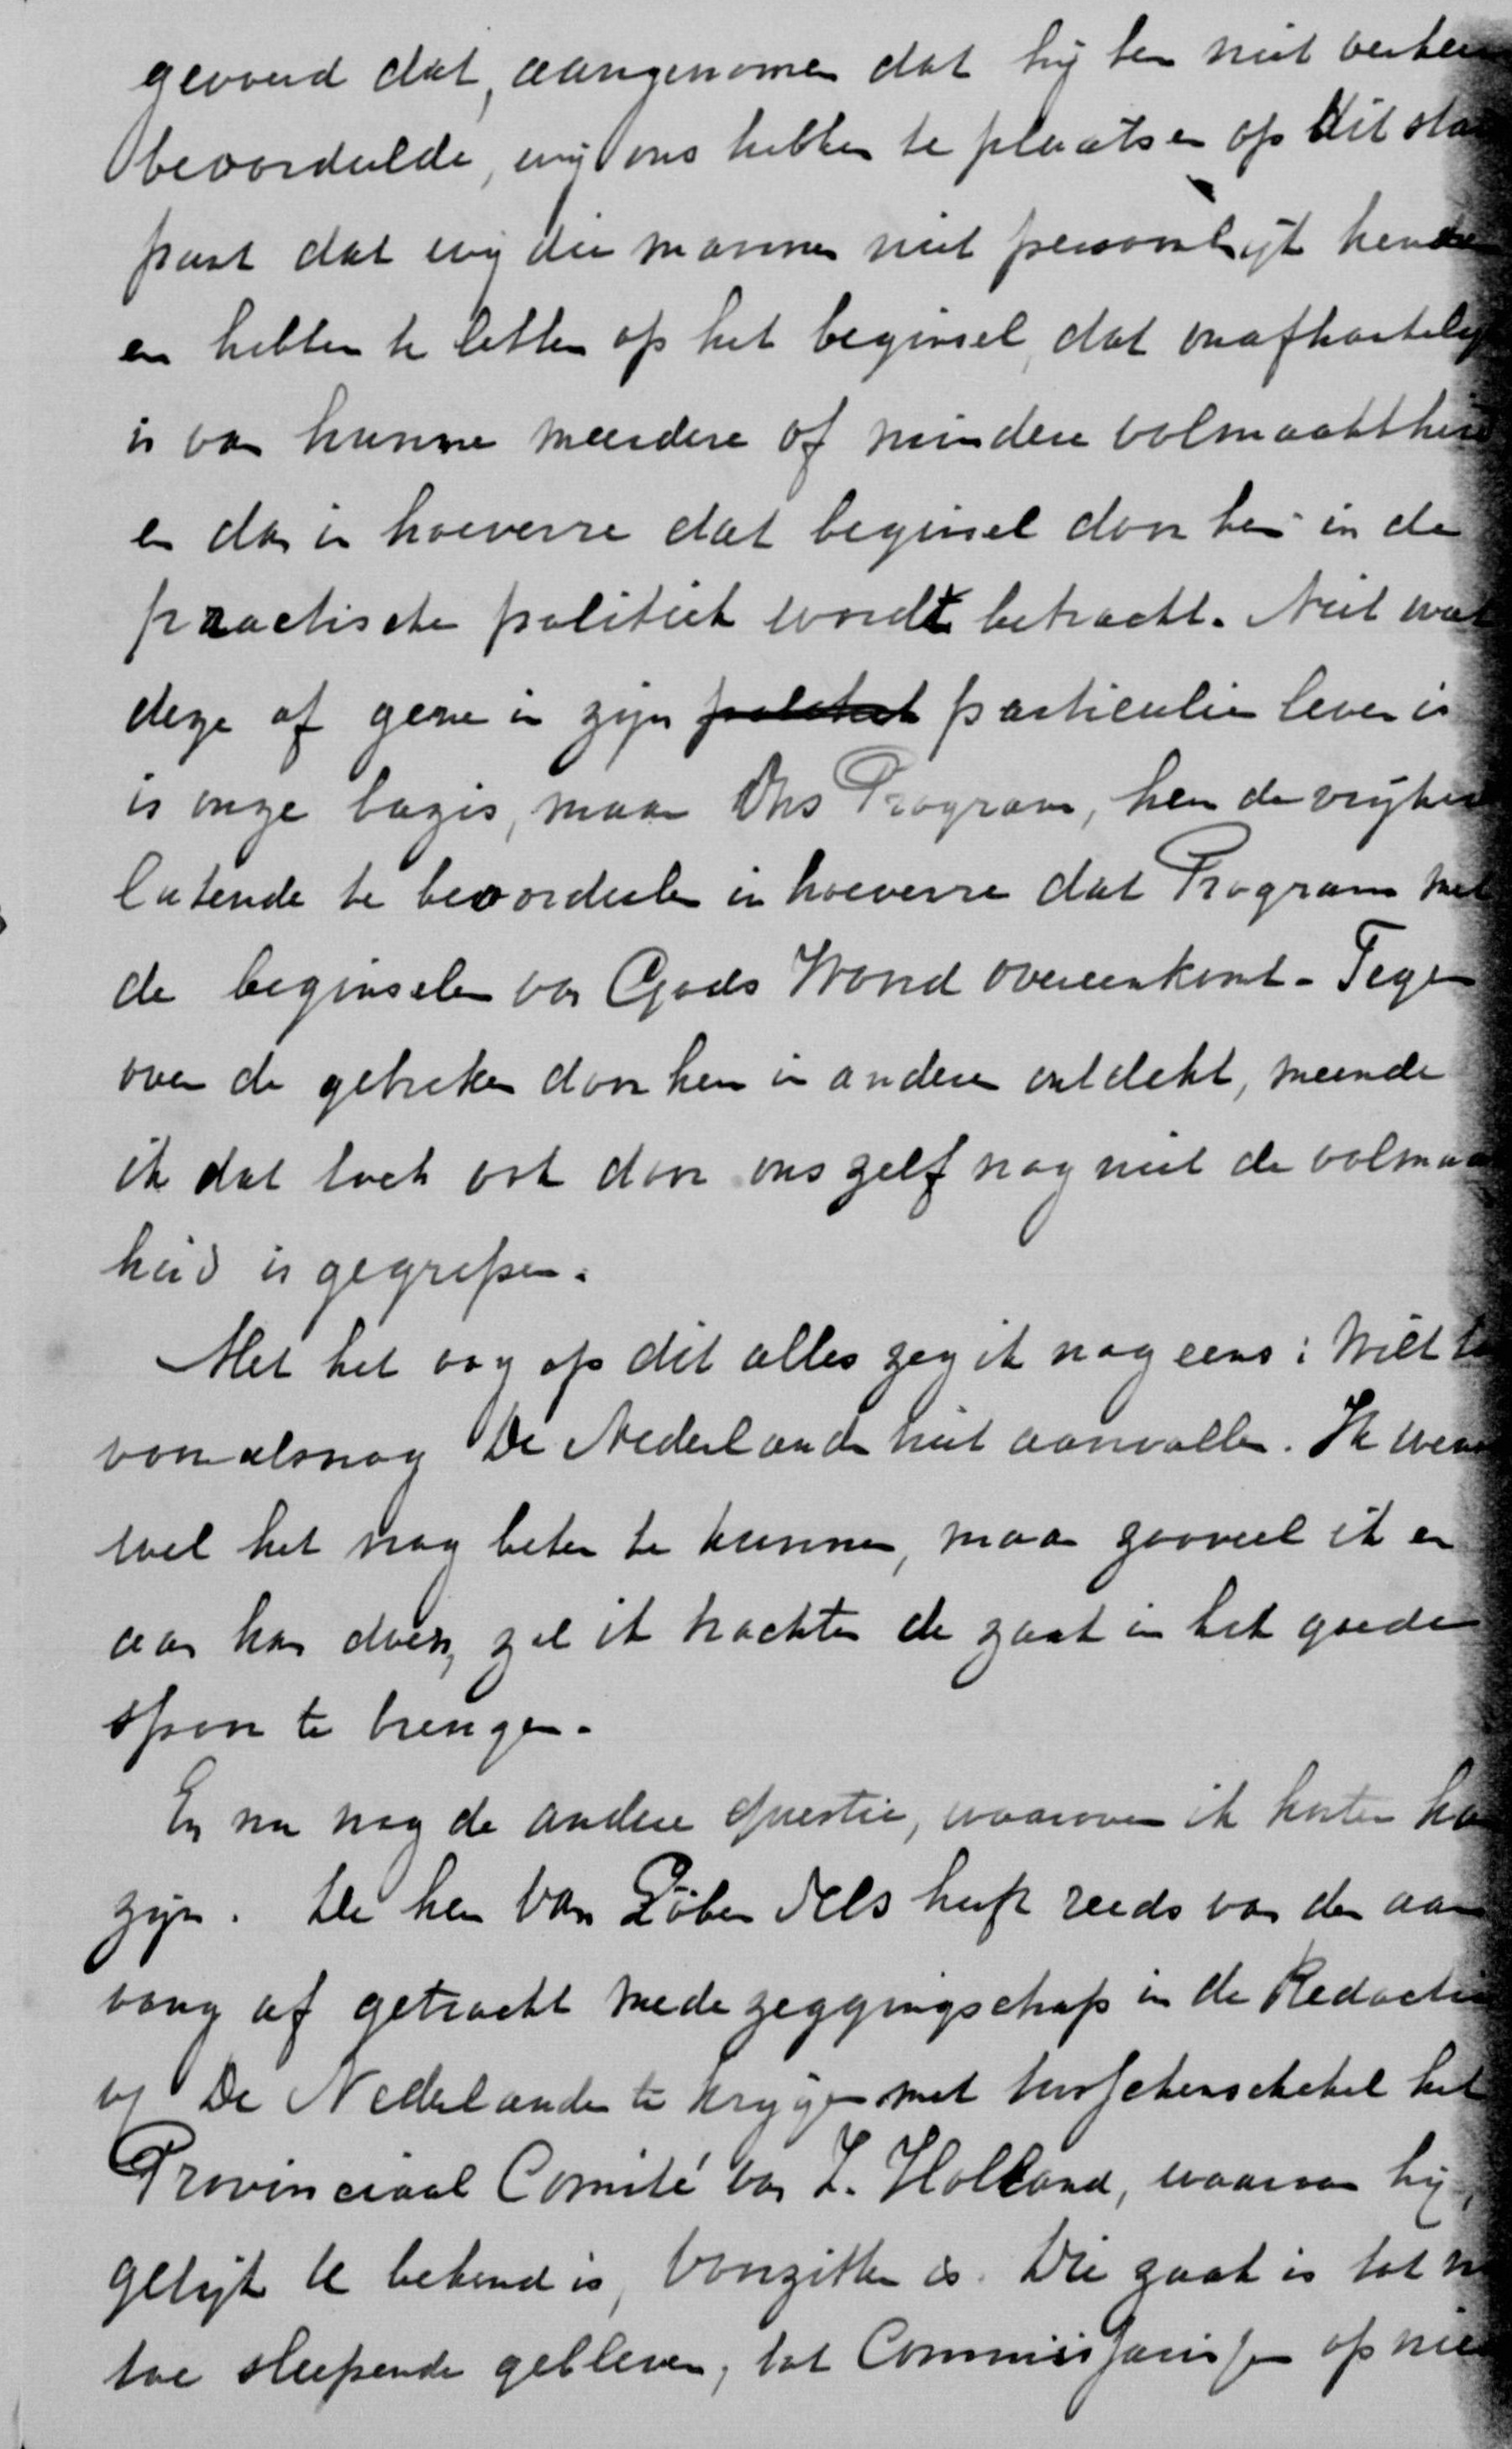 gevoerd dat, aangenomen dat hij hen niet verkeerd
beoordeelde, wij ons hebben te plaatsen op dit stand
punt dat wij die mannen niet persoonlijk kenden
en hebben te letten op het beginsel, dat onafhankelijk
is van hunne meerdere of mindere volmaaktheid
en dan in hoeverre dat beginsel door hen in de
practische politiek wordt betracht. Niet wat
deze of gene in zijn politiek particulier leven is
is onze bazis, maar Ons Program, hen de vrijheid
latende te beoordeelen in hoeverre dat Program met
de beginselen van Gods Woord overeenkomt - Tegen
over de gebreken door hen in anderen ontdekt, meende
ik dat toch ook door ons zelf nog niet de volmaakt
heid is gegrepen.
Met het oog op dit alles zeg ik nog eens: Wilt
vooralsnog De Nederlander niet aanvallen. Ik wensch
wel het nog beter te kunnen, maar zooveel ik er
aan kan doen, zal ik trachten de zaak in het goede
spoor te brengen.
En nu nog de andere questie, waarover ik korter kan
zijn. De heer Van Löben Sels heeft reeds van den aan
vang af getracht medezeggingschap in de Redactie
v/ De Nederlander te krijgen met tusschenschakel het
Provinciaal Comité van Z. Holland, waarvan hij,
gelijk U bekend is, Voorzitter is. Die zaak is tot nu
toe sleepende gebleven, tot Commissarissen op